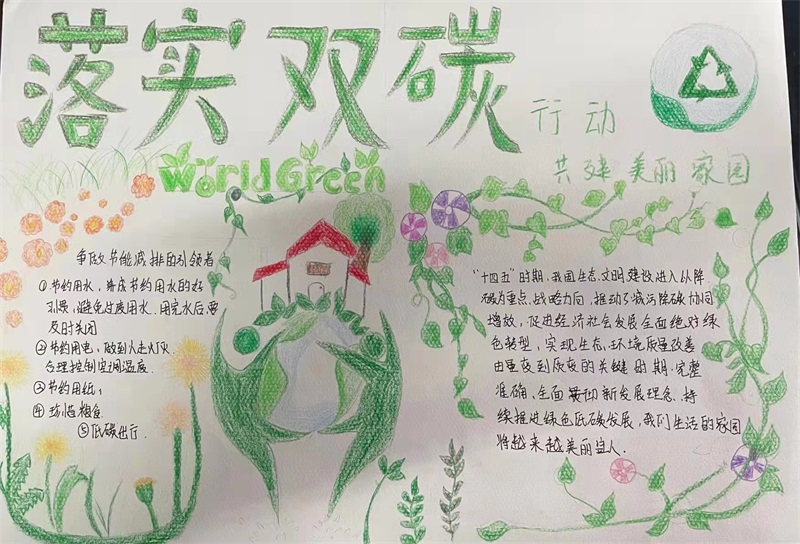 落实双碳
行动
共建美丽家园
World Green
争做节能减排的引领者
①节约用水，养成节约用水的好
习惯，避免过度用水.用完水后,要
及时关闭
②节约用电，做到人走灯灭
合理控制空调温度
③节约用纸；
④珍惜粮食
⑤低碳出行.
"十四五"时期，我国生态文明建设进入以降
碳为重点战略方向，推动了减污降碳协同
增效，促进经济社会发展全面绝对绿
色转型，实现生态环境质量改善
由量变到质变的关键时期.完整
准确、全面贯彻新发展理念、持
续推进绿色低碳发展，我们生活的家园
将越来越美丽宜人.